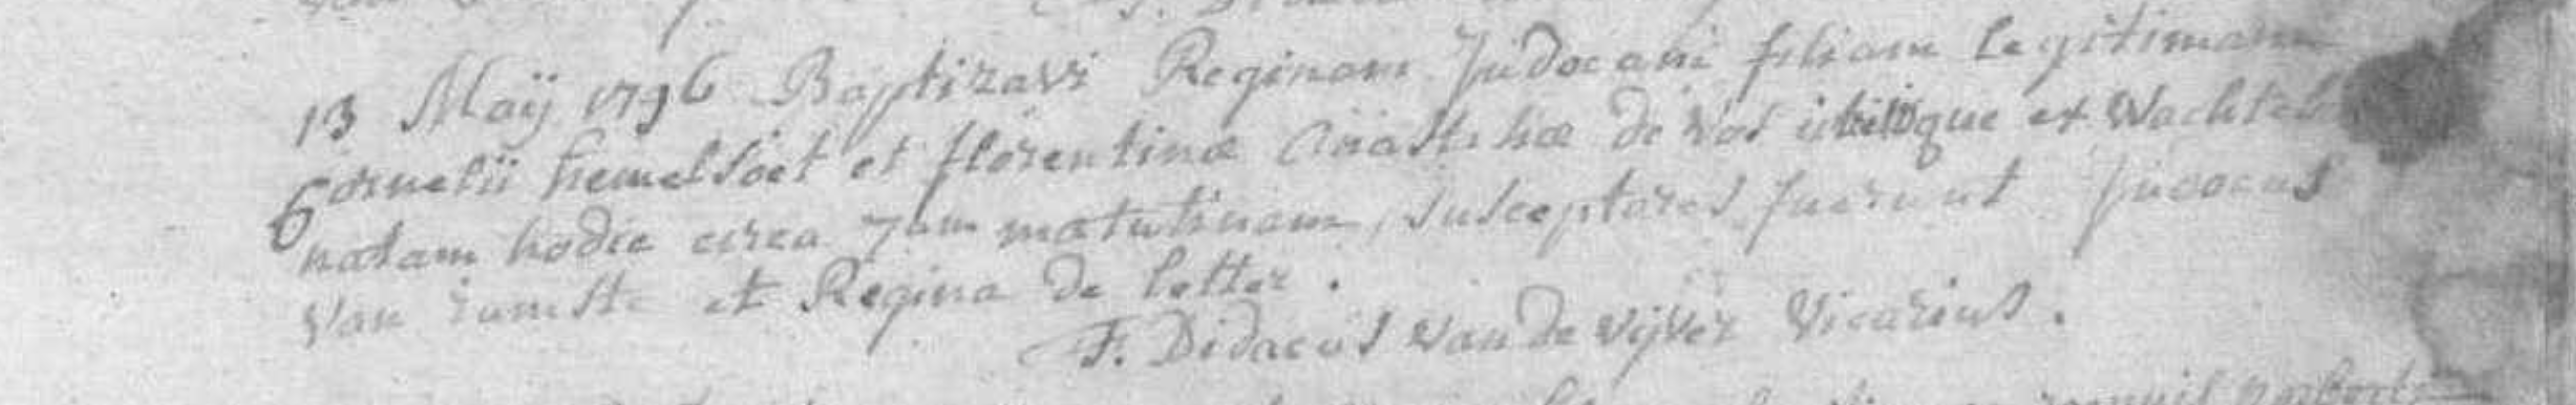 13 Maÿ 1796 Baptizavi Reginam Judocam filiam legitimam
Cornelii hemelsoet et florentinæ Anastasiæ de Vos utriusque ex Wachteb
natam hodie circa 7am matutinam, susceptores fuerunt Judocus
Van damste et Regina de letter.
F. Didacus Van de Vijver Vicarius.